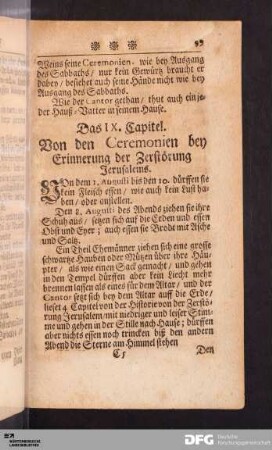 Weins seine Ceremonien. wie bey Ausgang
des Sabbaths/ nur kein Gewürtz braucht er
dabey/ besiehet auch seine Hände nicht wie bey
Ausgang des Sabbaths.
Wie der Cantor gethan/ thut auch ein je-
der Hauß-Vatter in seinem Hause.
Das IX. Capitel.
Von den Ceremonien bey
Erinnerung der Zerstörung
Jerusalems.
VOn dem 1. Augusti bis den 10. dürffen sie
kein Fleisch essen/ wie auch kein Lust ha-
ben/ oder anstellen.
Den 8. Augusti des Abends ziehen sie ihre
Schuh aus/ setzen sich auf die Erden und essen
Obst und Eyer; auch essen sie Brodt mit Asche
und Saltz.
Ein Theil Ehemänner ziehen sich eine grosse
schwartze Hauben oder Mützen über ihre Häu-
pter/ als wie einen Sack gemacht/ und gehen
in den Tempel dürffen aber kein Liecht mehr
brennen lassen als eines für dem Altar/ und der
Cantor setzt sich bey dem Altar auff die Erde/
lieset 4 Capitel von der Historie von der Zerstö-
rung Jerusalem mit niedriger und leiser Stim-
me und gehen in der Stille nach Hause; dürffen
aber nichts essen noch trincken biß den andern
Abend die Sterne am Himmel stehen
C 5 Den
WÜRTTEMBERGISCHE
LANDESBIBLIOTHEK
DFG Deutsche
Forschungsgemeinschaft